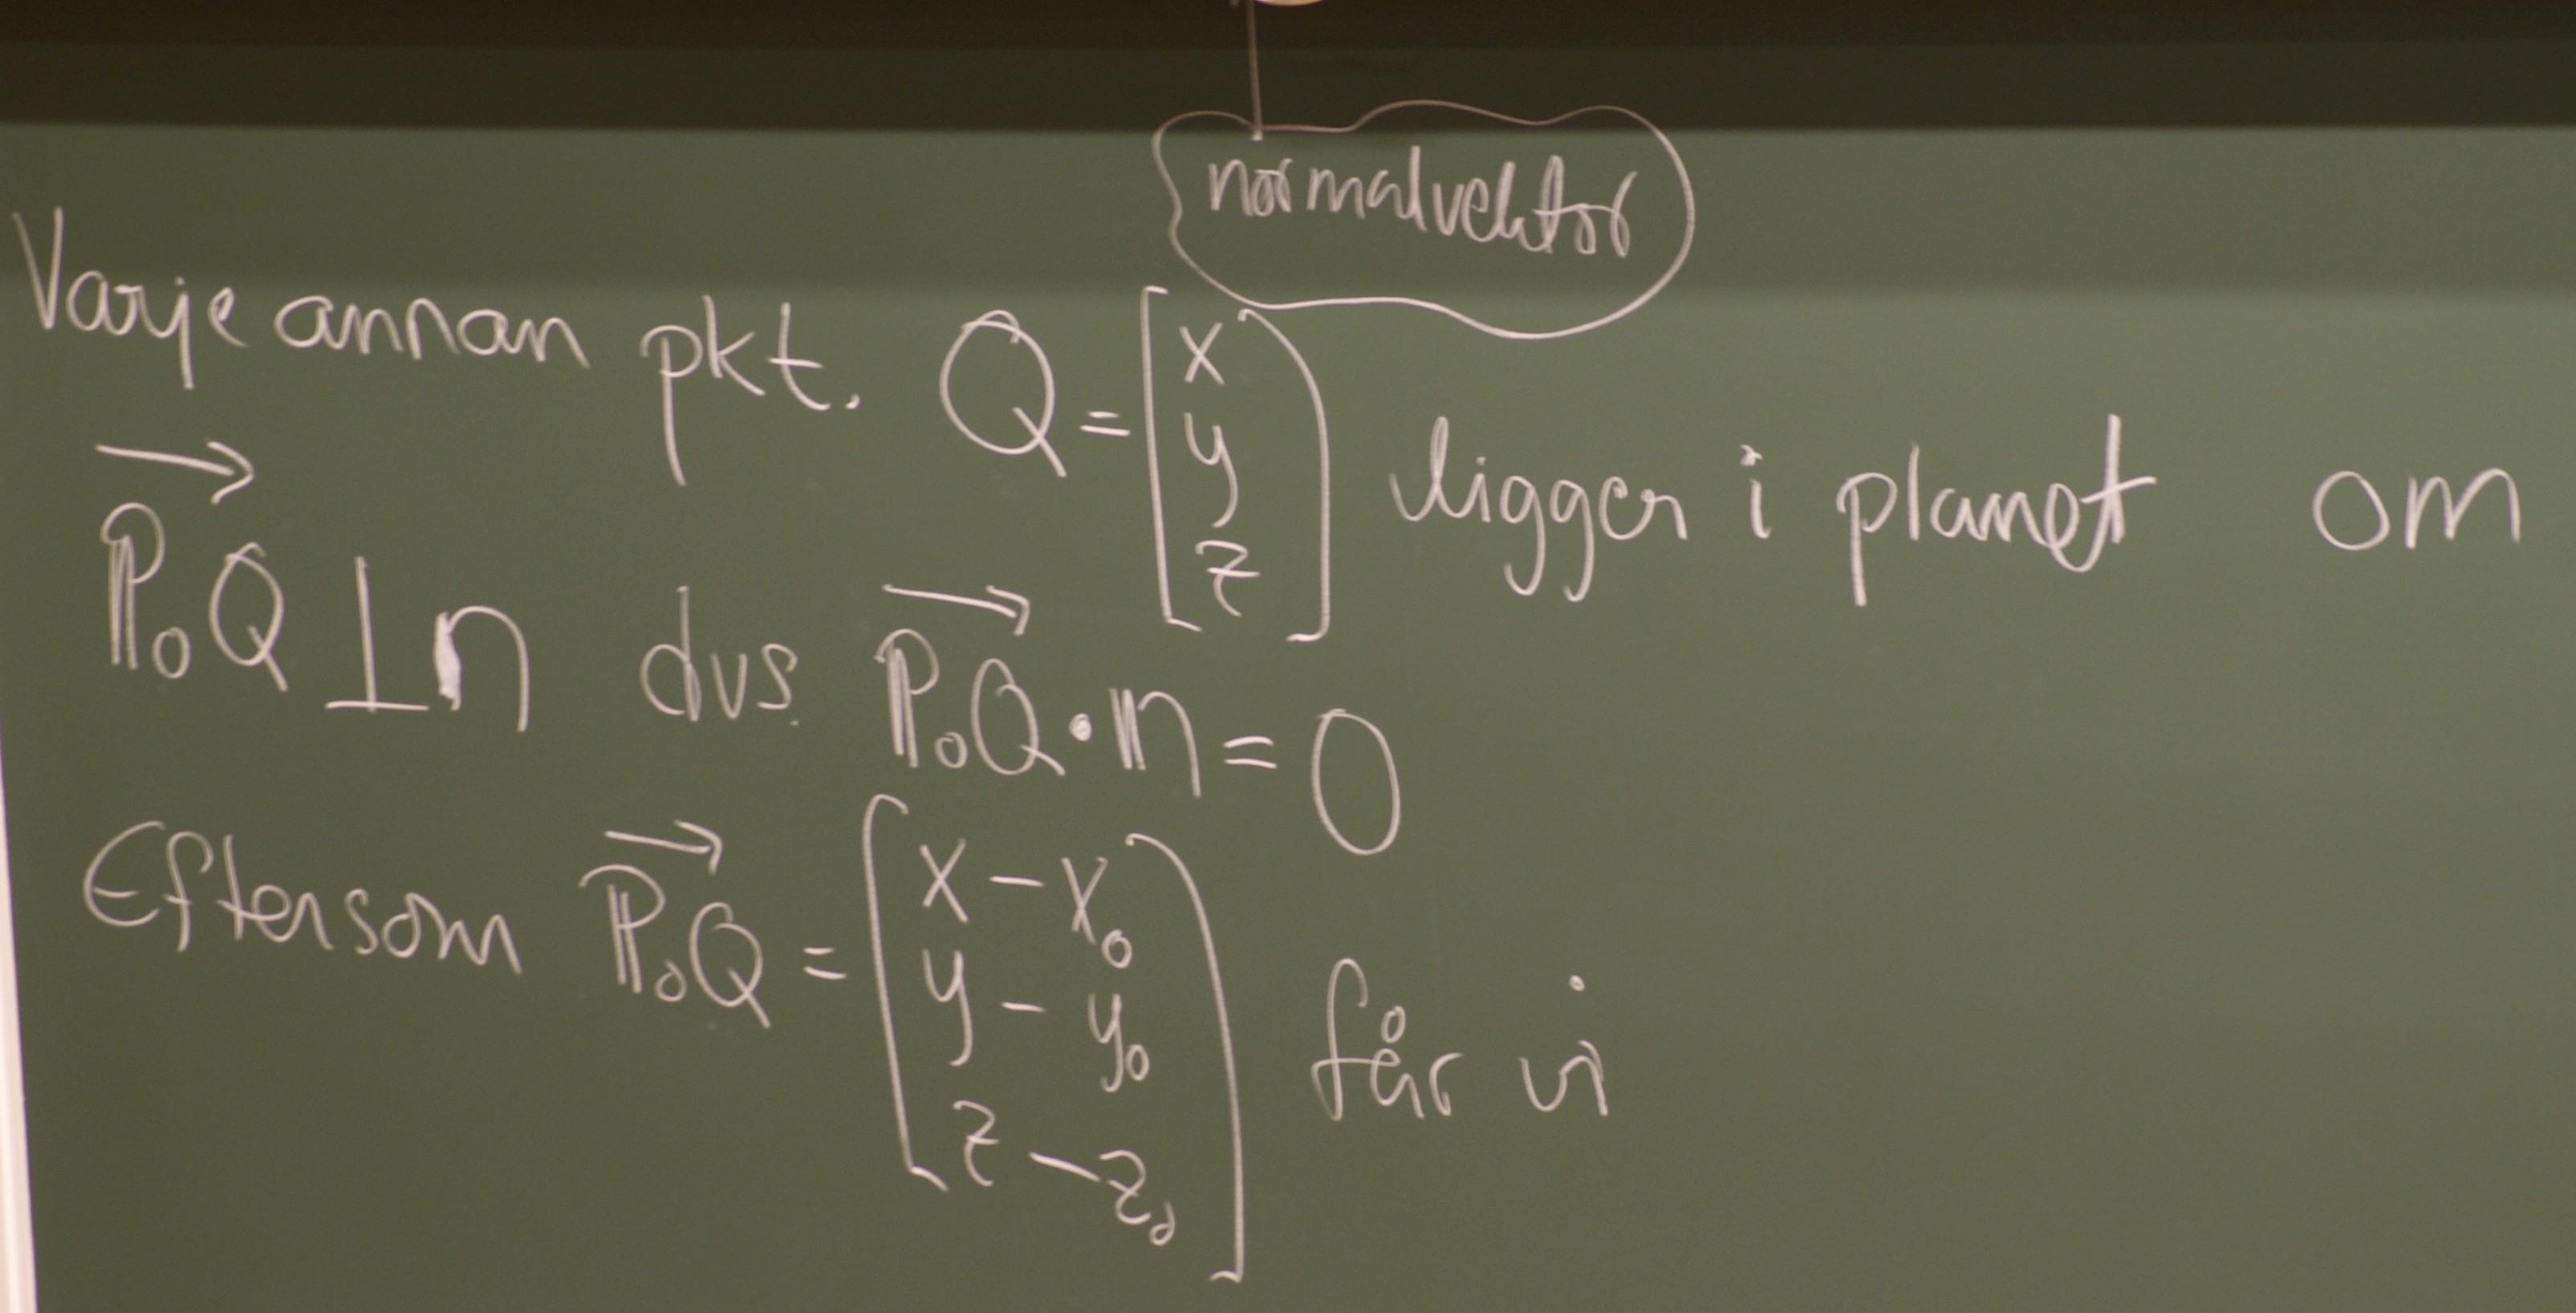 normalvektor
Varje annan pkt. Q = [x y z] ligger i planet om
P₀Q ⊥ n dvs. P₀Q · n = 0
Eftersom P₀Q = [x - x₀ y - y₀ z - z₀] får vi